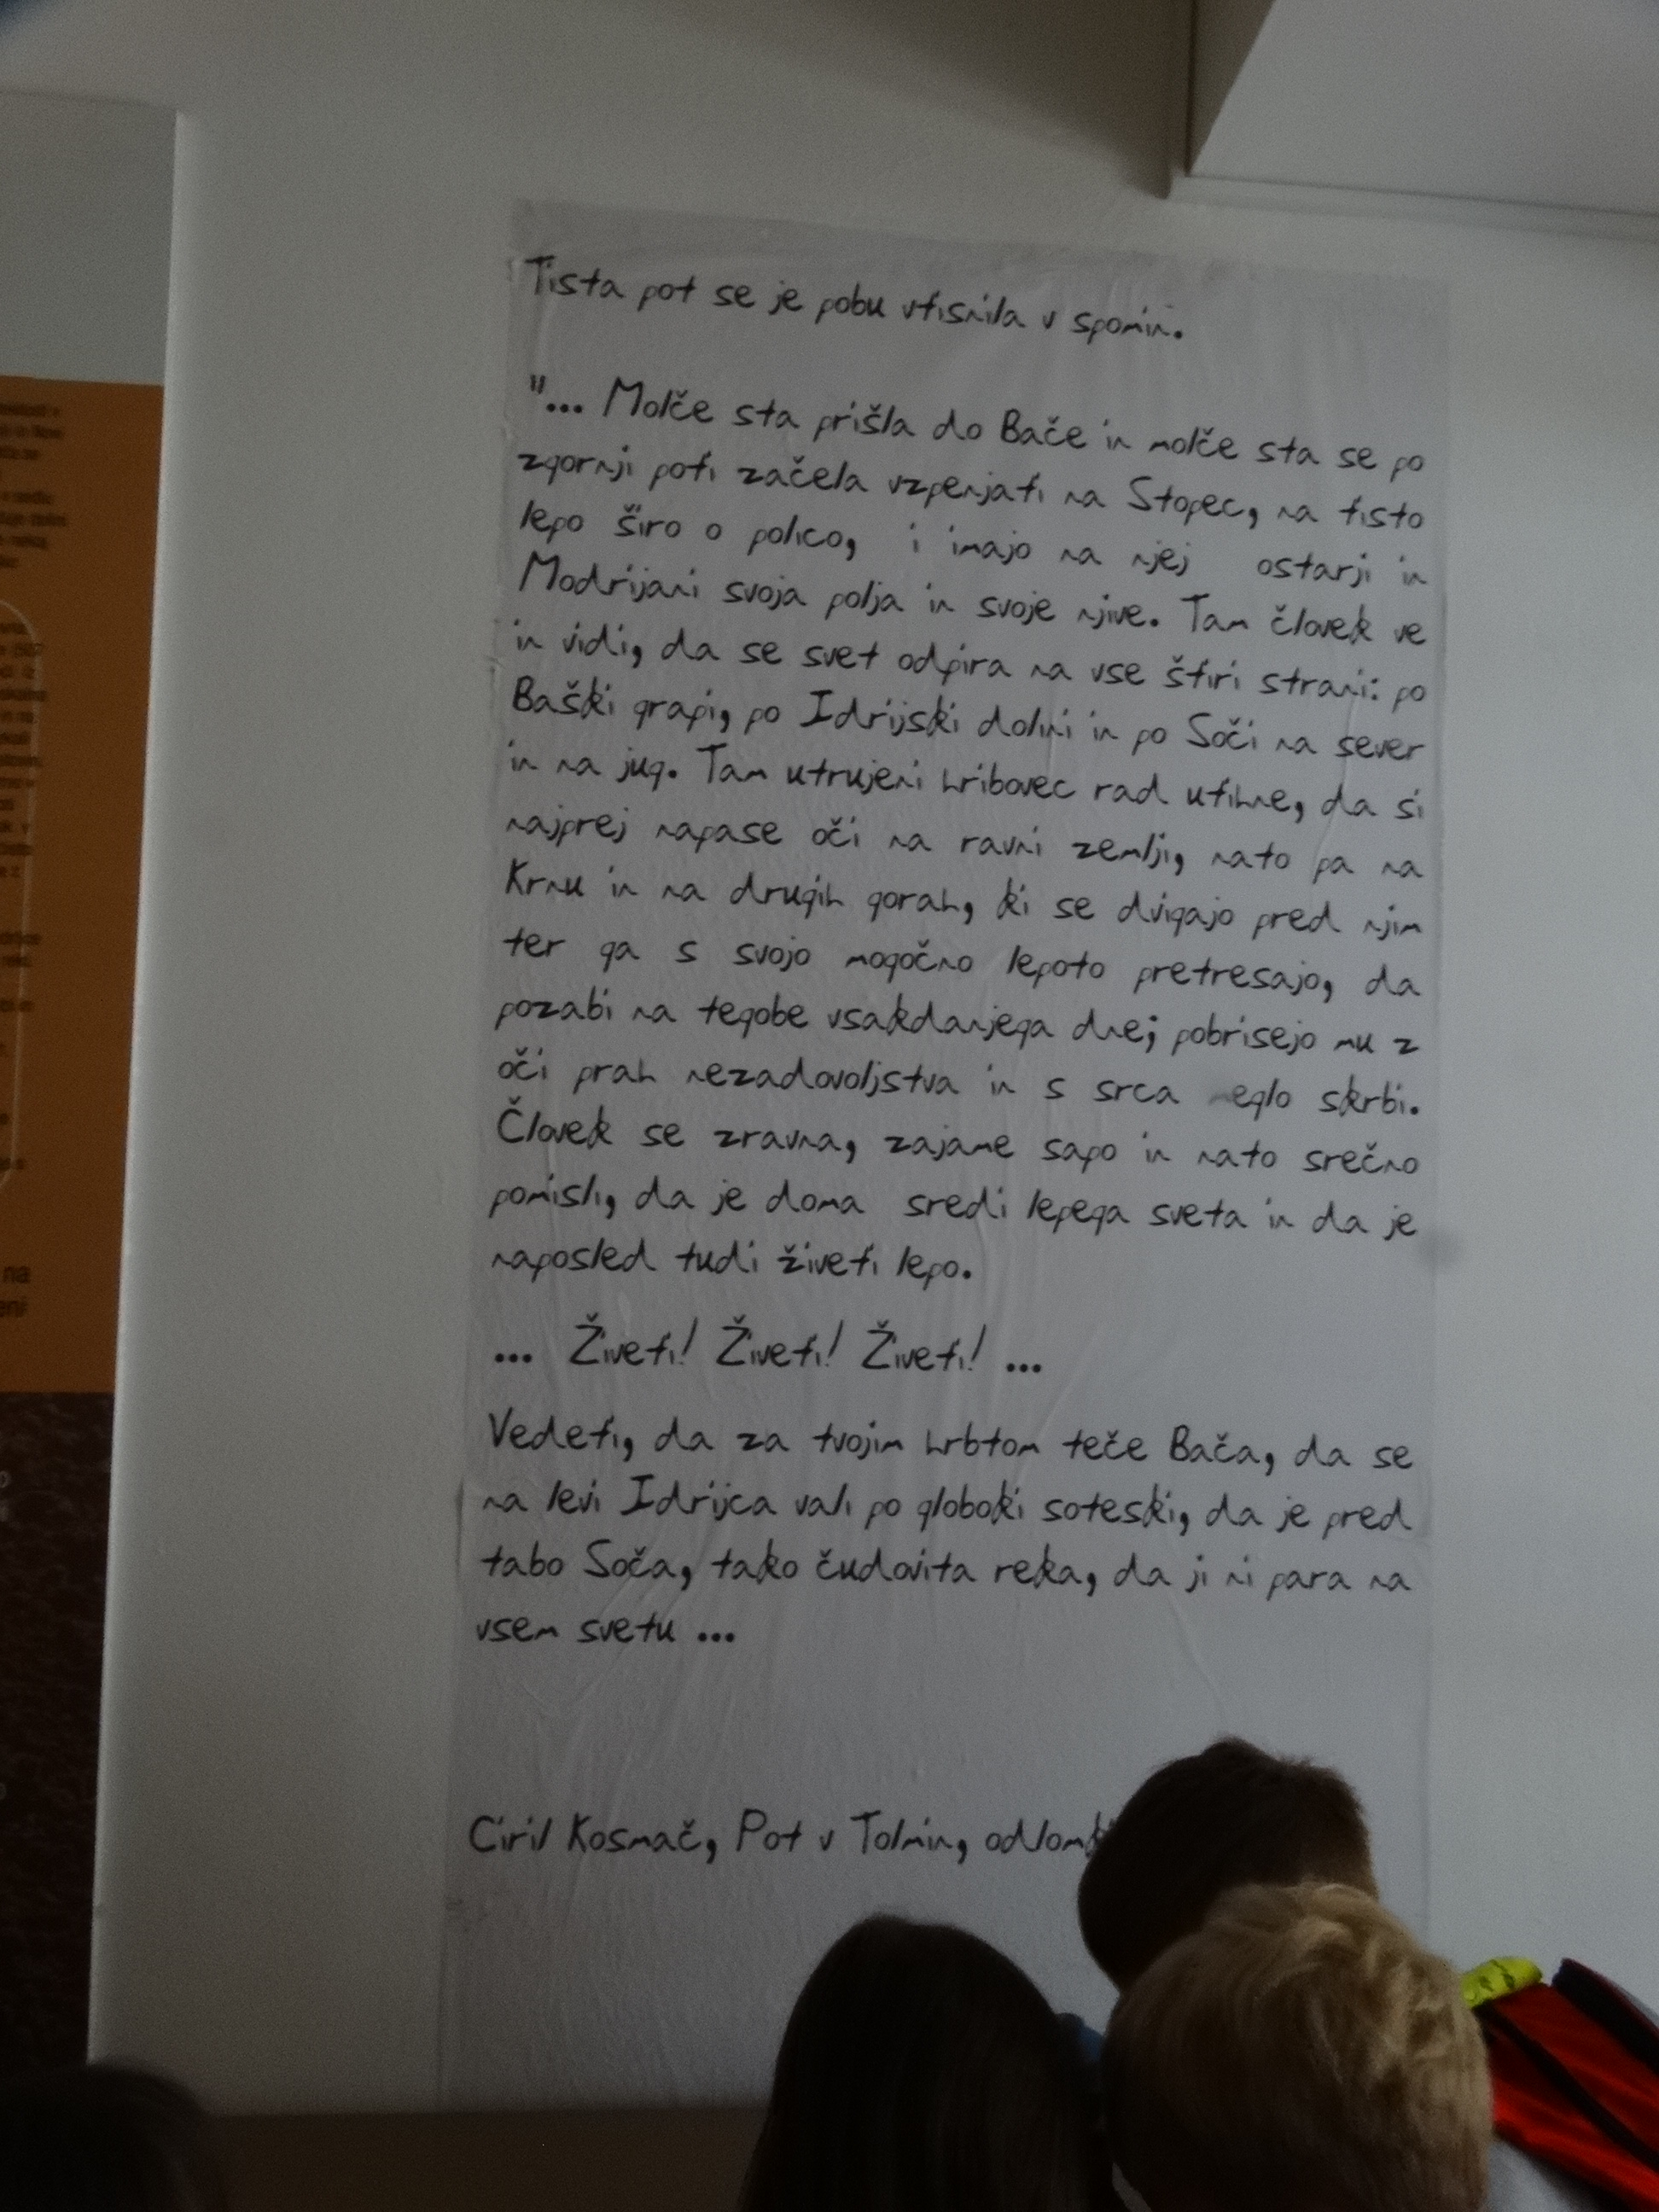 Tista pot se je pobu vtisnila v spomin.
"... Molče sta prišla do Bače in molče sta se po
zgornji poti začela vzpenjati na Stopec, na tisto
lepo širo o polico, i imajo na njej ostarji in
Modrijani svoja polja in svoje njive. Tam človek ve
in vidi, da se svet odpira na vse štiri strani: po
Baški grapi, po Idrijski dolini in po Soči na sever
in na jug. Tam utrujeni hribovec rad utihne, da si
najprej napase oči na ravni zemlji, nato pa na
Krnu in na drugih gorah, ki se dvigajo pred njim
ter ga s svojo mogočno lepoto pretresajo, da
pozabi na tegobe vsakdanjega dne; pobrisejo mu z
oči prah nezadovoljstva in s srca meglo skrbi.
Človek se zravna, zajame sapo in nato srečno
pomisli, da je doma sredi lepega sveta in da je
naposled tudi živeti lepo.
... Živeti! Živeti! Živeti! ...
Vedeti, da za tvojim hrbtom teče Bača, da se
na levi Idrijca vali po globoki soteski, da je pred
tabo Soča, tako čudovita reka, da ji ni para na
vsem svetu ...
Ciril Kosmač, Pot v Tolmin,
na